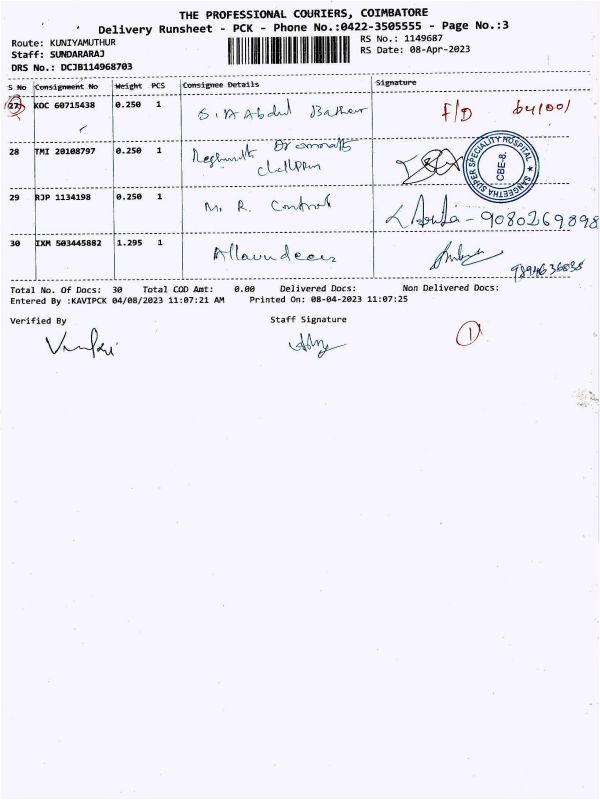 THE PROFESSIONAL COURIERS, COIMBATORE
Delivery Runsheet - PCK - Phone No.:0422-3505555 - Page No.:3
Route: KUNIYAMUTHUR
RS No.: 1149687
Staff: SUNDARARAJ
RS Date: 08-Apr-2023
DRS No.: DCJB114968703
S No Consignment No Weight PCS Consignee Details Signature
27 KOC 60715438 0.250 1 S.A Abdul F/D 641001
28 TMI 20108797 0.250 1
SANGEETHA SUPER SPECIALITY HOSPITAL ★ CBE-8.
29 RJP 1134198 0.250 1 M. R. Control 9080269898
30 IXM 503445882 1.295 1 9894636838
Total No. Of Docs: 30 Total COD Amt: 0.00 Delivered Docs: Non Delivered Docs:
Entered By :KAVIPCK 04/08/2023 11:07:21 AM Printed On: 08-04-2023 11:07:25
Verified By Staff Signature
1